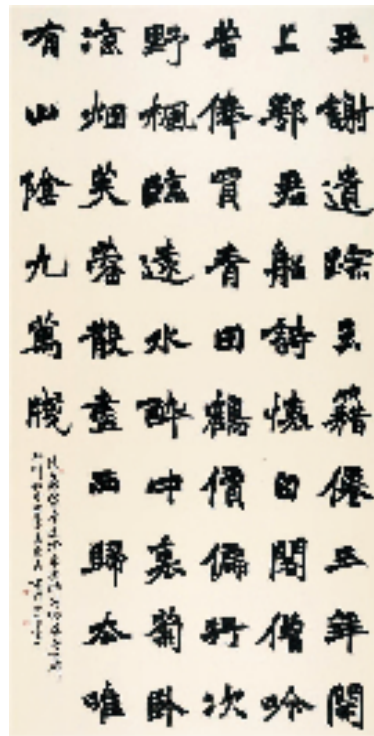 王謝遺踪玉籍僊三年閑
上鄂君船詩懷白閣僧吟
苦俸買青田鶴價偏行次
野楓臨遠水醉中衰菊臥
涼烟芙蓉散盡西歸去唯
有山陰九萬牋